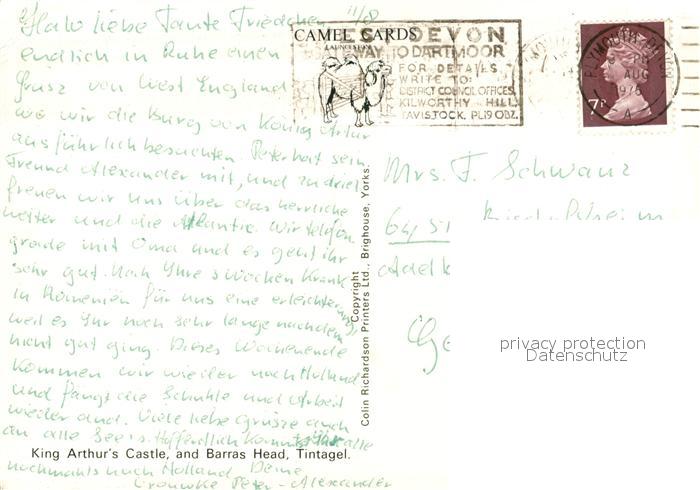 11/8
Halo liebe Tante Friedchen
endlich in Ruhe einen
Grüsz von West England
wo wir die Burg von König Artur
ausführlich besuchten. Peter hat sein
Freund Alexander mit, und zu drei
freuen wir uns über das herrliche
wetter und die Atlantic. Wir telefon
grade mit Oma und es geht ihr
sehr gut. Nach Ihre 3 Wochen Krank
in
für uns eine erleichterung
weil es Ihr noch sehr lange nachdem
nicht gut ging. Dieses Wochenende
kommen wir wieder nach Holland
und fängt die Schuhle und Arbeit
wieder and. Viele liebe Grüsze auch
an alle See's. Hoffendlich kommt Ihr alle
King Arthur's Castle, and Barras Head, Tintagel.
nochmahls nach Holland. Deine
Peter - Alexander
Copyright
Colin Richardson Printers Ltd., Brighouse, Yorks.
CAMEL CARDS
LAUNCESTON
DEVON
WAY TO DARTMOOR
FOR DETAILS
WRITE TO:
DISTRICT COUNCIL OFFICES,
KILWORTHY HILL,
TAVISTOCK. PL19 0BZ.
PLYMOUTH DEVON
PM
AUG
1975
A
7P
Mrs. F. Schwanz
64 51
Ge
privacy protection
Datenschutz